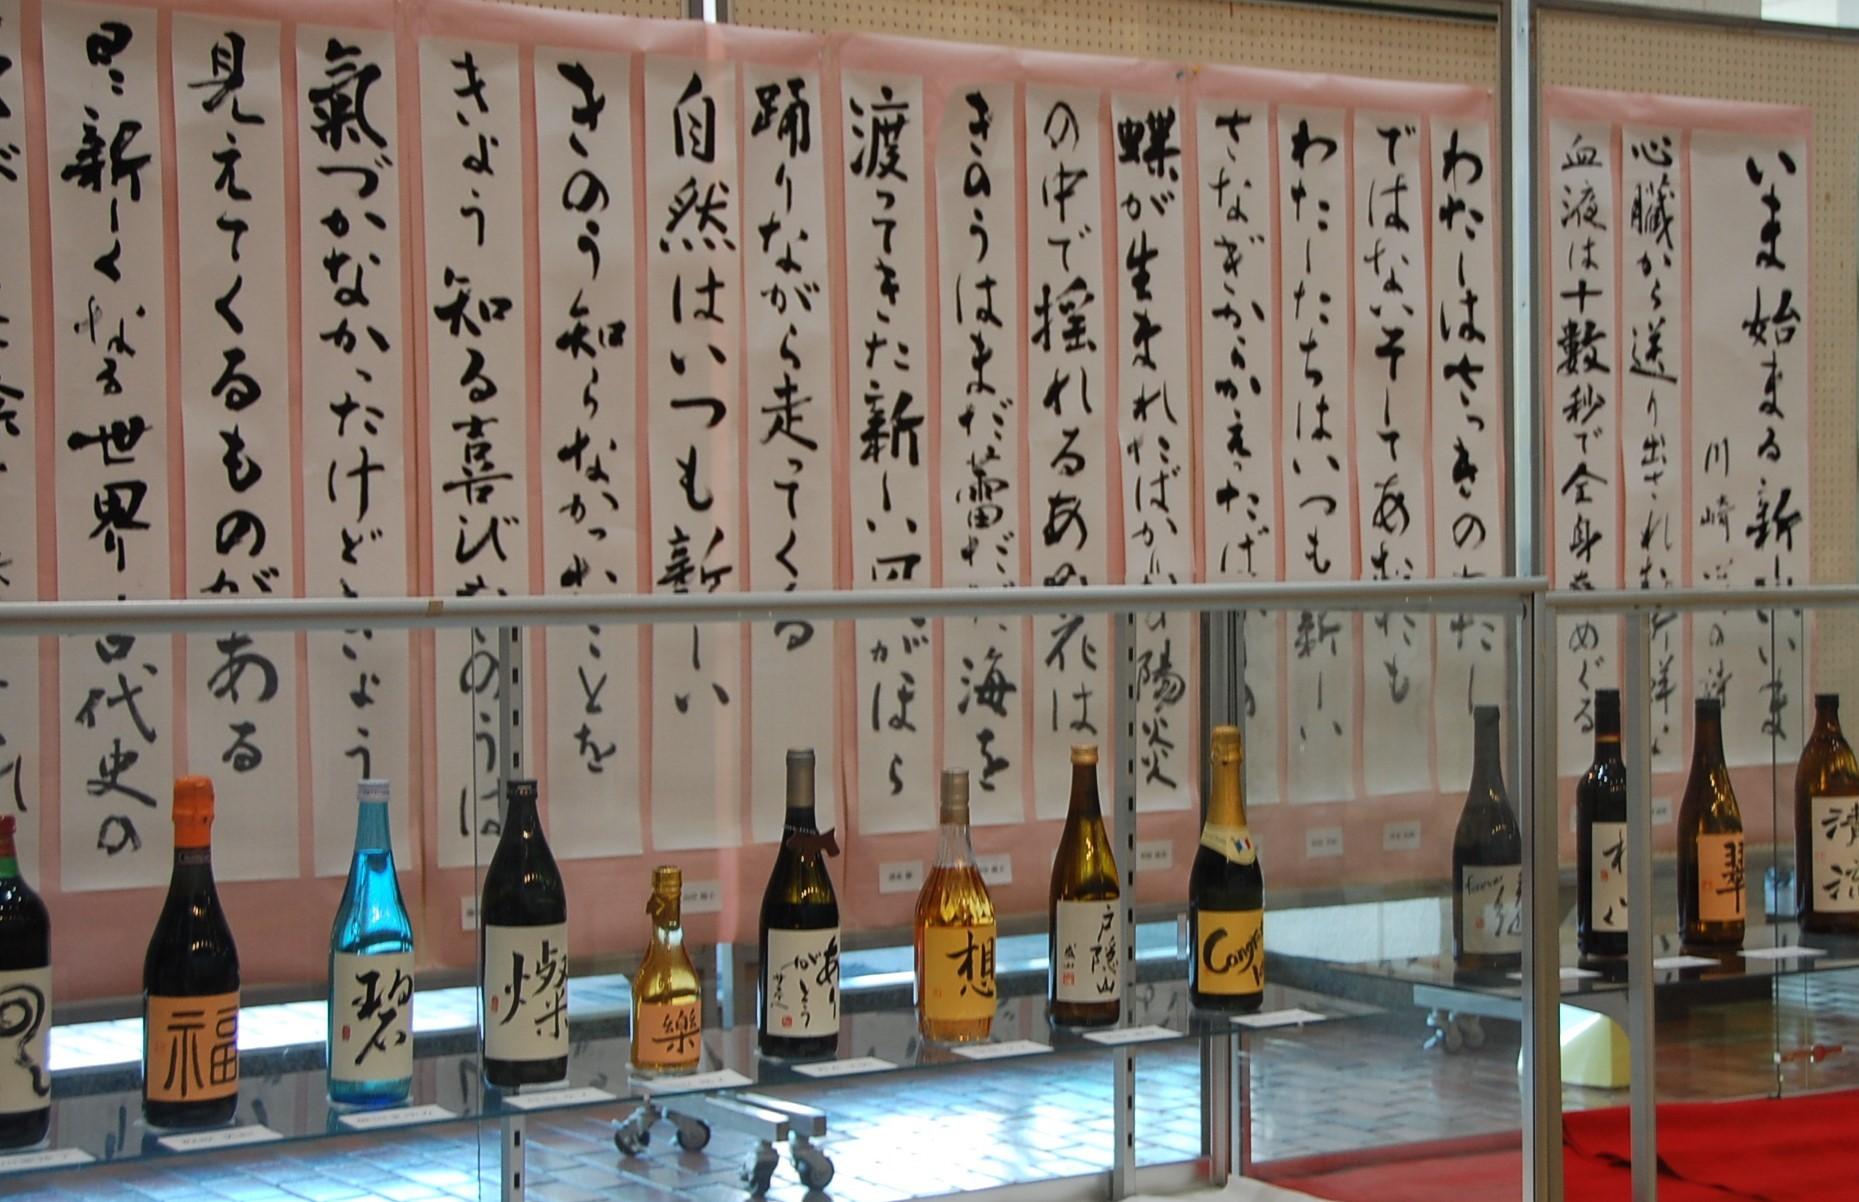 いま始まる新しいいま
川崎 洋の詩
心臓から送り出された新鮮な
血液は十数秒で全身をめぐる
わたしはさっきのわたし
ではない そしてあなたも
わたしたちはいつも新しい
さなぎからかえったばかりの
蝶が生まれたばかりの陽炎
の中で揺れる あの花は
きのうはまだ蕾だった 海を
渡ってきた新しい風がほら
踊りながら走ってくる
自然はいつも新しい
きのう知らなかったことを
きょう知る喜び きのうは
気づかなかったけどきょう
見えてくるものがある
日に新しくなる世界 古代史の
福
碧
燦
樂
ありがとう
想
戸隠山
forever
翠
清流